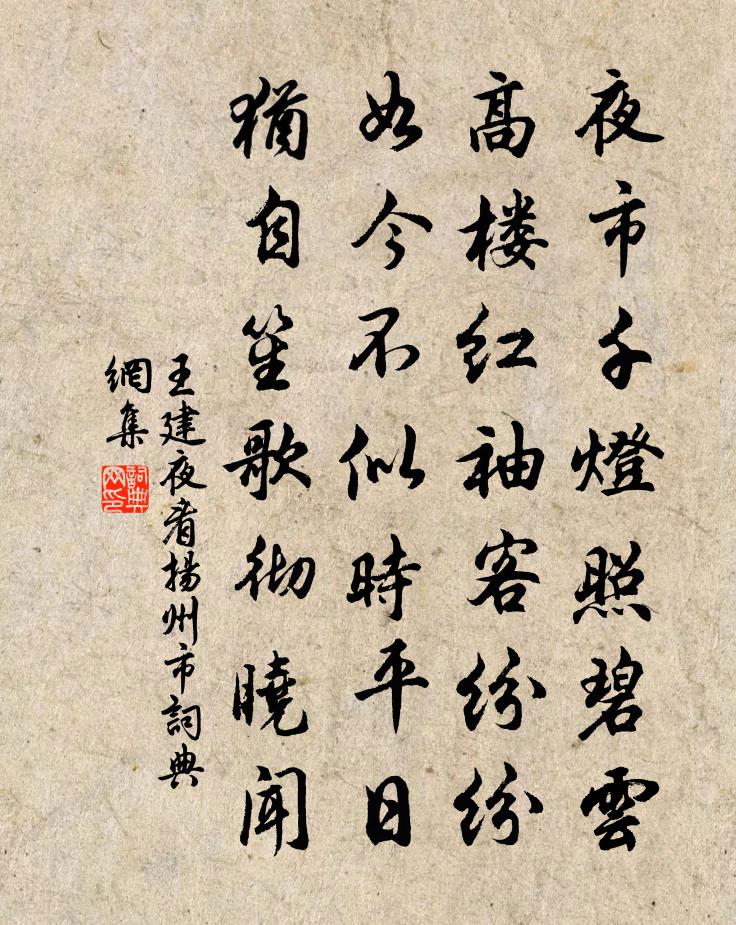 夜市千燈照碧雲
高楼红袖客纷纷
如今不似時平日
猶自笙歌彻曉闻
王建夜看揚州市詞典
網集
詞典網印